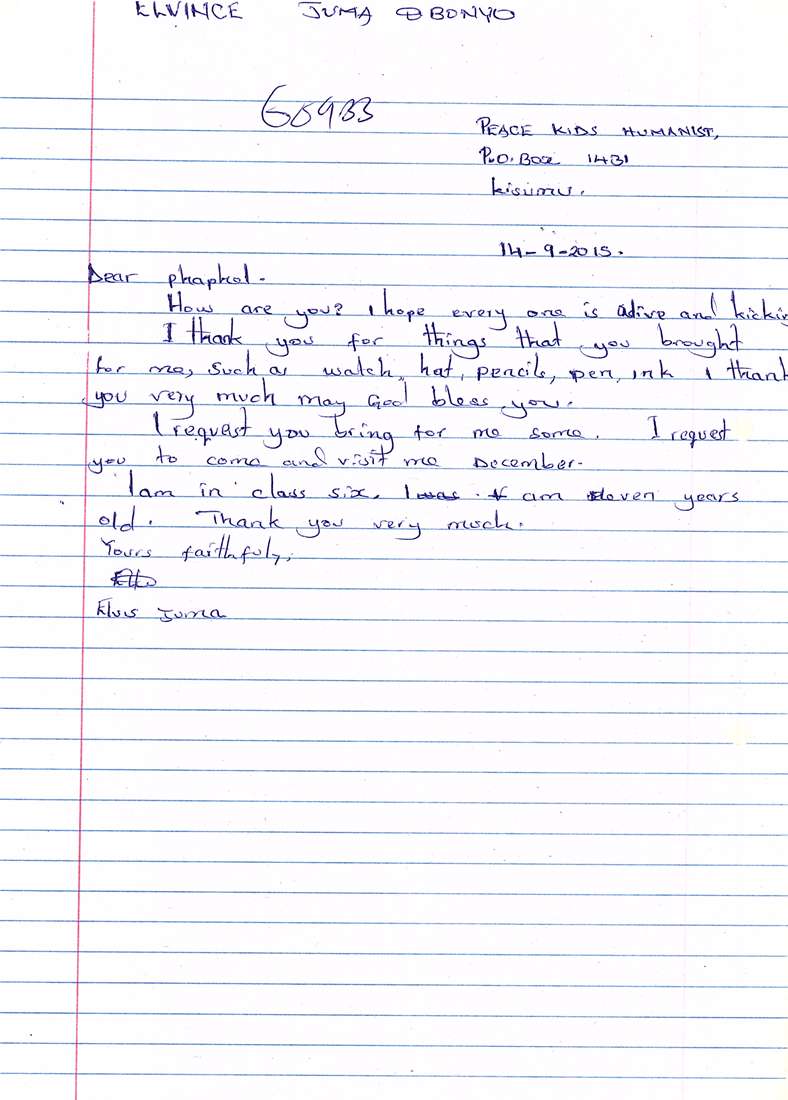 ELVINCE JUMA OBONYO
60933
PEACE KIDS HUMANIST,
P.O. Box 1431
kisumu.
14-9-2015.
Dear phaphal.
How are you? I hope every one is alive and kickin
I thank you for things that you brought
for me, such as watch, hat, pencils, pen, ink I thank
you very much may God bless you.
I request you bring for me some. I request
you to come and visit me December.
I am in class six. I was am eleven years
old. Thank you very much.
Yours faithfuly,
Elvis Juma